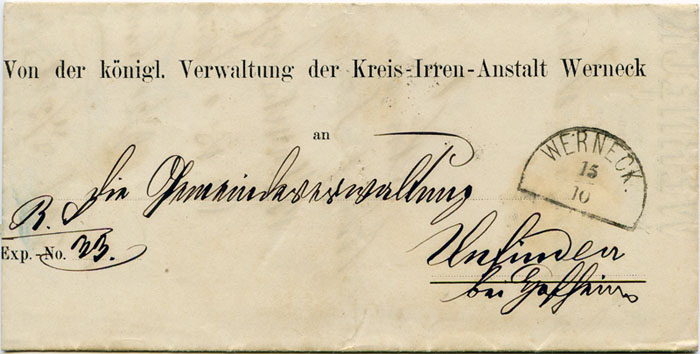 Von der königl. Verwaltung der Kreis-Irren-Anstalt Werneck
an
WERNECK.
15
10
die Gemeindeverwaltung
R. S.
Exp. No. 33.
Unfinden
bei Hofheim